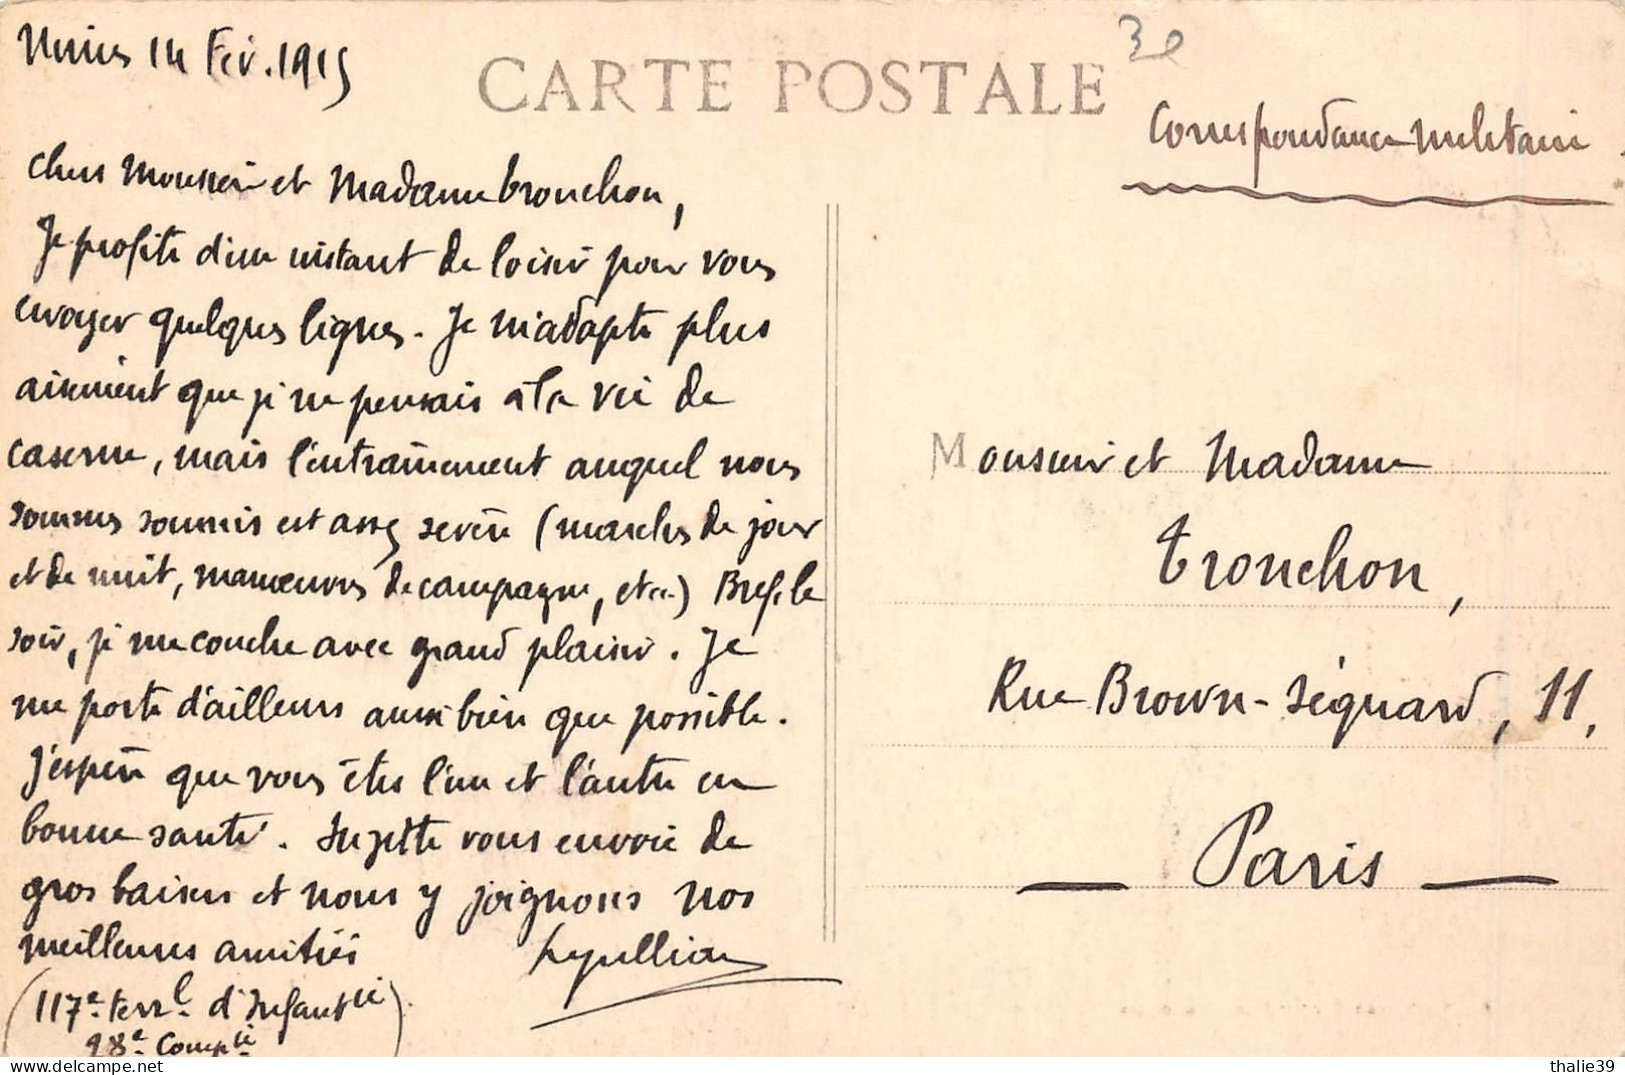 Nimes 14 Fév. 1915
CARTE POSTALE
Correspondance militaire
Chers Monsieur et Madame Tronchon,
Je profite d'une instant de loisir pour vous
envoyer quelques lignes. Je m'adapte plus
aisément que je ne pensais à la vie de
caserne, mais l'entraînement auquel nous
sommes soumis est assez sévère (marches de jour
et de nuit, manœuvres de campagne, etc.) Bref, le
soir, je me couche avec grand plaisir. Je
me porte d'ailleurs aussi bien que possible.
J'espère que vous êtes l'un et l'autre en
bonne santé. Suzette vous envoie de
gros baisers et nous y joignons nos
meilleures amitiés
(117e terrl d'Infantie).
28e Compie
Monsieur et Madame
Tronchon,
Rue Brown-Séquard, 11,
— Paris —
thalie39